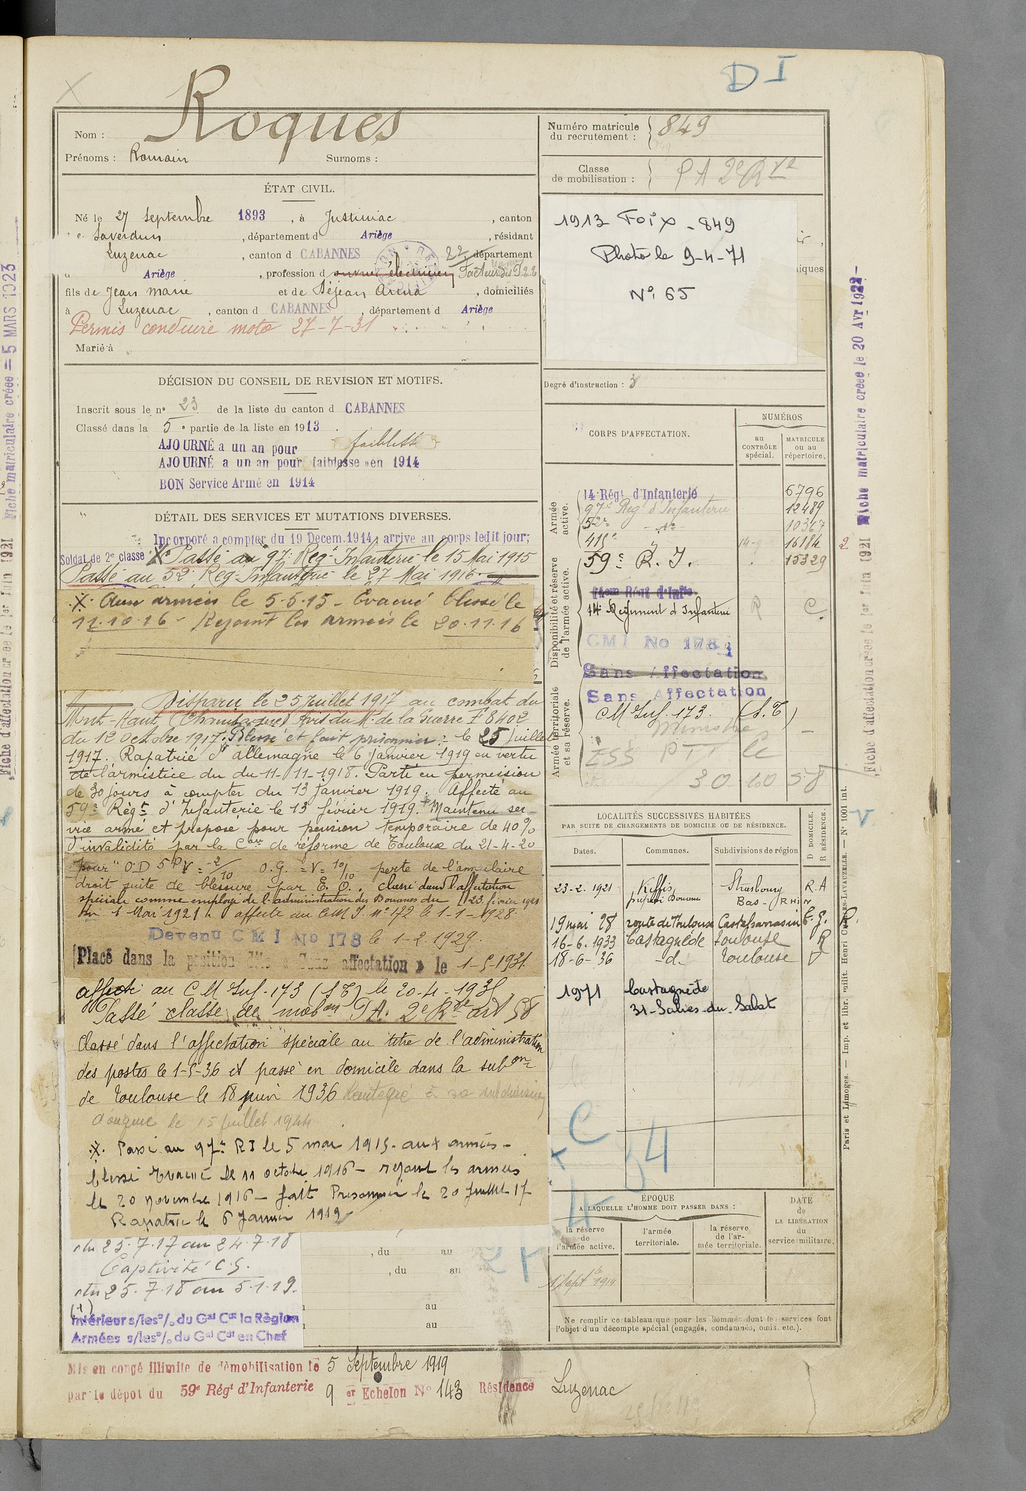 D I
Roques
Nom :
Prénoms : Romain Surnoms :
ÉTAT CIVIL.
Né le 27 Septembre 1893, à Justiniac, canton
de Saverdun, département d Ariège, résidant
Luzenac, canton d CABANNES, département
Ariège, profession d ouvrier électricien Facteur
fils de Jean Marie et de Séjean Arcna, domiciliés
à Luzenac, canton d CABANNES, département d Ariège
Permis conduire moto 27-7-31
Marié à
DÉCISION DU CONSEIL DE REVISION ET MOTIFS.
Inscrit sous le n° 23 de la liste du canton d CABANNES
Classé dans la 5e partie de la liste en 1913.
AJOURNÉ a un an pour faiblesse
AJOURNÉ a un an pour faiblesse en 1914
BON Service Armé en 1914
DÉTAIL DES SERVICES ET MUTATIONS DIVERSES.
Incorporé a compter du 19 Decem. 1914, arrive au corps ledit jour;
Soldat de 2e classe X Passé au 97e Reg. Infanterie le 15 Mai 1915
Passé au 52e Reg. Infanterie le 27 Mai 1916.
X Aux armées le 5-5-15 - Evacué blessé le
11.10.16 - Rejoint les armées le 20.11.16
Disparu le 25 juillet 1917 au combat du
Mont-Haut (Champagne) Avis du M. de la Guerre F 8402
du 12 Octobre 1917. Blessé et fait prisonnier le 25 juillet
1917. Rapatrié d'Allemagne le 6 janvier 1919 en vertu
de l'armistice du 11-11-1918. Parti en permission
de 30 jours à compter du 13 janvier 1919. Affecté au
59e Régt d'Infanterie le 13 février 1919. Maintenu ser-
vice armé et proposé pour pension temporaire de 40%
d'invalidité par la Con de réforme de Toulouse du 21-4-20
pour O.D V = 2/10 O.G. V = 10/10 perte de l'annulaire
droit suite de blessure par E. O. Classé dans l'affectation
spéciale comme employé de l'administration des Douanes du 23 février 1921
au 1 Mai 1921 affecté au CMI n° 172 le 1-1-1928
Devenu CMI No 178 le 1-2-1929.
Placé dans la position dite « Sans affectation » le 1-5-1931
affecté au C M Inf. 173 (1E) le 20-4-1938
Passé classe de mobon P.A. 2e Rve art 58
Classé dans l'affectation spéciale au titre de l'administration
des postes le 1-5-36 et passé en domicile dans la subon
de Toulouse le 18 juin 1936
le 15 juillet 1944
X. Passé au 97e RI le 5 mai 1915 - aux armées -
blessé évacué le 11 octobre 1916 - rejoint les armées
le 20 novembre 1916 - fait Prisonnier le 20 juillet 17
Rapatrié le 6 Janvier 1919
du 25.7.17 au 24.7.18
Captivité C.S.
du 25.7.18 au 5.1.19.
(1)
Intérieur s/les o/o du Gal Cdt la Région
Armées s/les o/o du Gal Cdt en Chef
, du au
, du au
au
au
Mis en congé illimité de démobilisation le 5 Septembre 1919
par le dépôt du 59e Régt d'Infanterie 9 er Echelon N° 143 Résidence Luzenac
Numéro matricule
du recrutement : 849
Classe
de mobilisation : PA 2e Rve
1913 FOIX - 849
Photo le 9-4-71
N°: 65
Degré d'instruction : 3
CORPS D'AFFECTATION.
NUMÉROS
AU CONTRÔLE spécial.
MATRICULE ou au répertoire.
Armée active.
14 Régt d'Infanterie 6796
97e Regt d'Infanterie 12489
52e -d- 10347
411e 16184
59e R. I. 15329
Disponibilité et réserve de l'armée active.
14e Régiment d'Infanterie R C
CMI No 178
Sans Affectation
Sans Affectation
Armée territoriale et sa réserve.
CM Inf. 173. (S.E)
Ministre
ESS PTT le
30 10 58
LOCALITÉS SUCCESSIVES HABITÉES
PAR SUITE DE CHANGEMENTS DE DOMICILE OU DE RÉSIDENCE.
Dates. Communes. Subdivisions de région D DOMICILE. R RÉSIDENCE.
23-2-1921 Kiffis Strasbourg R A
préposé Douanes Bas-RHIN
19 mai 28 route de Toulouse Castelsarrasin R.
16-6-1933 Castagnède Toulouse R
18-6-36 -d- Toulouse D
1971 Castagnède
31-Salies-du-Salat
C
34
ÉPOQUE
A LAQUELLE L'HOMME DOIT PASSER DANS :
la réserve de l'armée active.
l'armée territoriale.
la réserve de l'armée territoriale.
DATE de LA LIBÉRATION du service militaire.
1 Sept 1914
Ne remplir ce tableau que pour les hommes dont les services font
l'objet d'un décompte spécial (engagés, condamnés, omis, etc.).
Paris et Limoges. — Imp. et libr. milit. Henri CHARLES-LAVAUZELLE. — N° 1001 int.
Fiche d'affectation créée le 1er Juin 1921
Fiche matriculaire créée le 20 Avr 1922
Fiche d'affectation créée le 1er Juin 1921
Fiche matriculaire créée = 5 MARS 1923